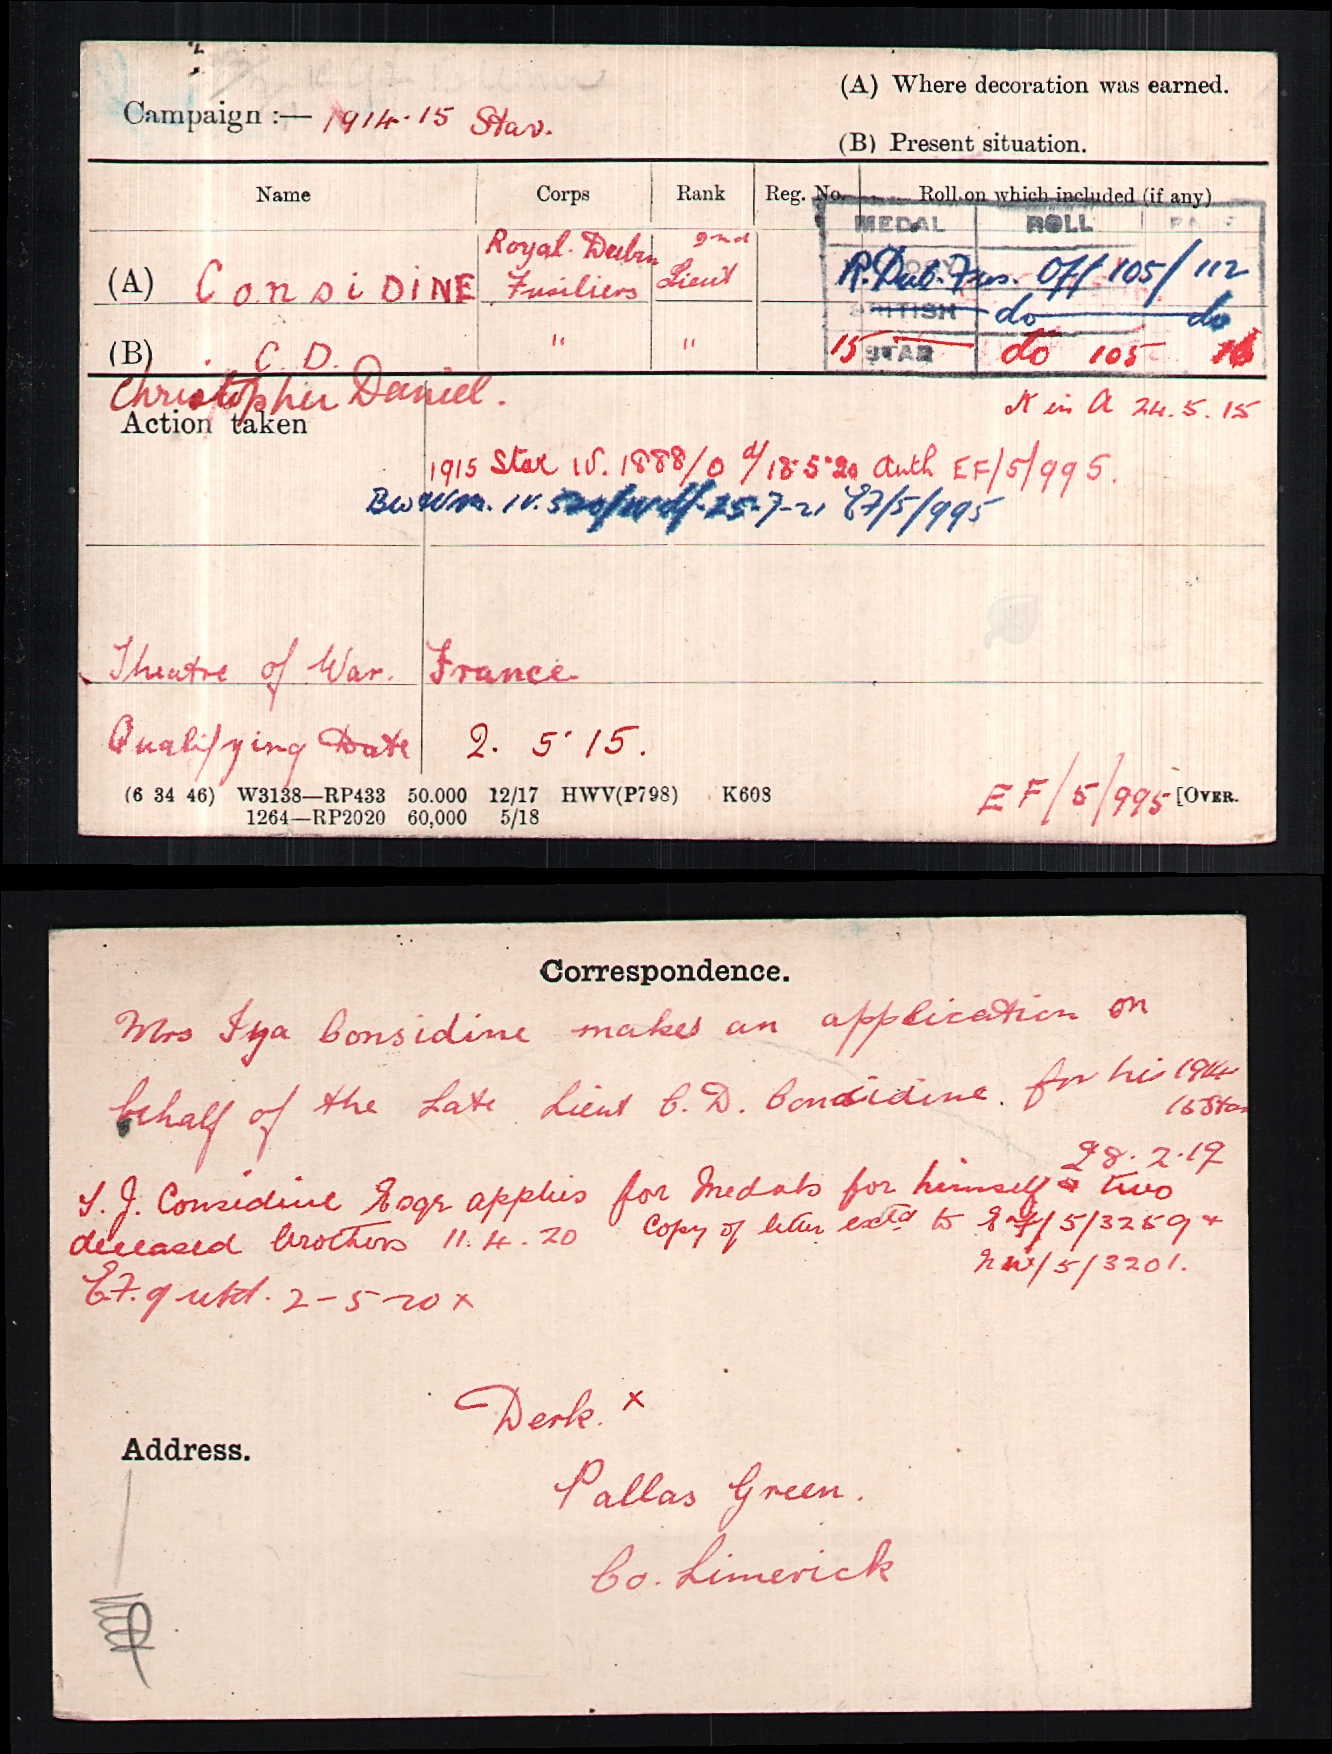 (A) Where decoration was earned.
Campaign :— 1914-15 Star.
(B) Present situation.
Name Corps Rank Reg. No. Roll on which included (if any)
MEDAL ROLL PAGE
Royal Dubn 2nd
(A) ConsiDINE Fusiliers Lieut R. Dub. Fus. Off/105/112
BRITISH do do
(B) C. D. " " 15 STAR do 105
Christopher Daniel. K in A 24.5.15
Action taken
1915 Star IV. 1888/0 d/18.5.20 Auth EF/5/995.
BW&VM. IV. 25-7-21 EF/5/995
Theatre of War. France
Qualifying Date 2. 5. 15.
(6 34 46) W3138—RP433 50.000 12/17 HWV(P798) K608
1264—RP2020 60,000 5/18
EF/5/995 [OVER.
Correspondence.
Mrs Considine makes an application on
behalf of the Late Lieut C. D. Considine. for his 1914
15 Star
28.2.19
Considine Esqr applies for Medals for himself & two
deceased brothers 11.4.20 Copy of letter extd to /5/3259 &
NW/5/3201.
EF.9 2-5-20 x
Derk. x
Address.
Pallas Green.
Co. Limerick